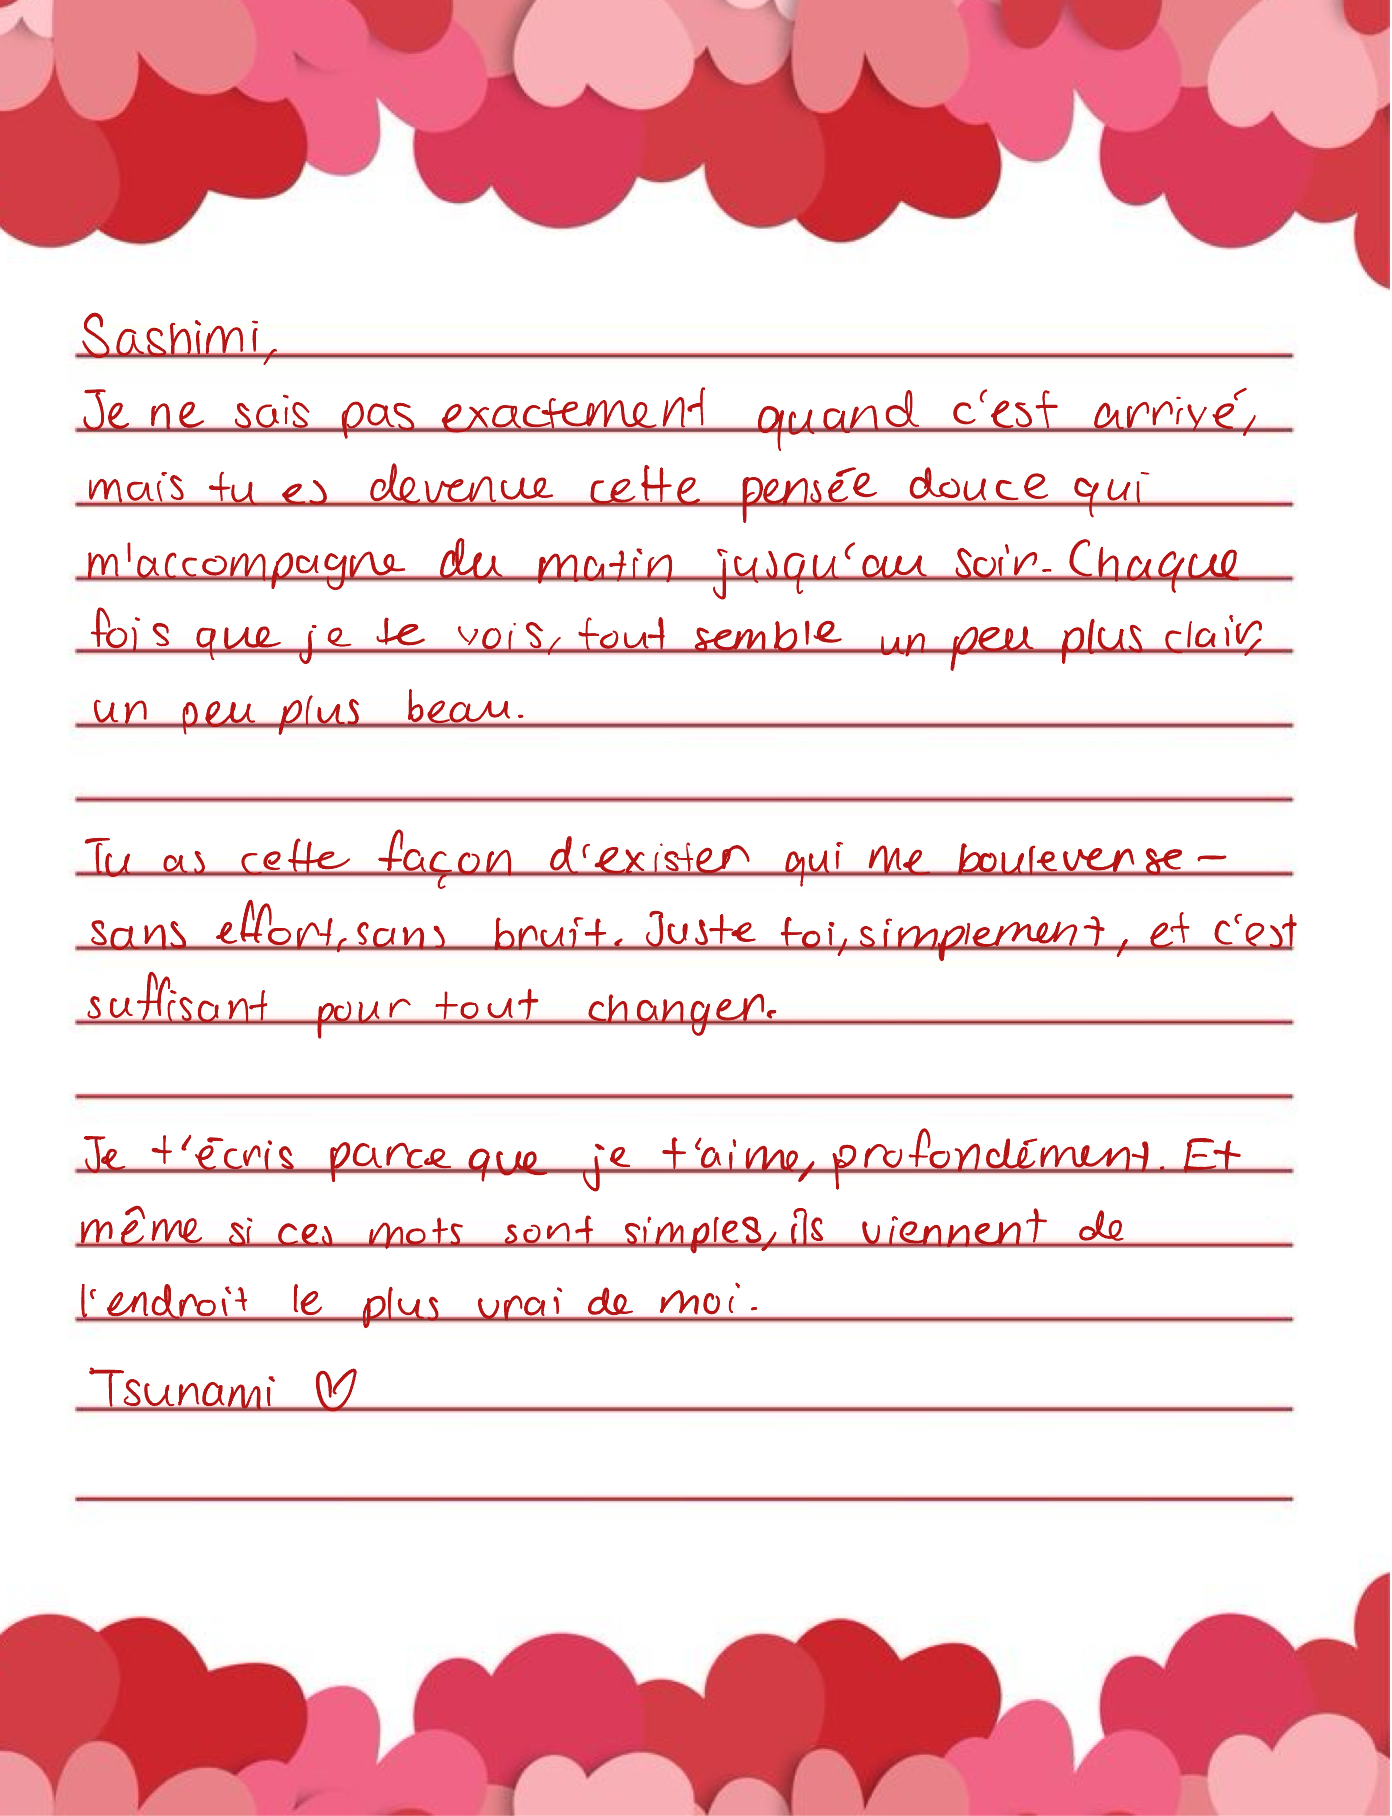 Sashimi,
Je ne sais pas exactement quand c'est arrivé,
mais tu es devenue cette pensée douce qui
m'accompagne du matin jusqu'au soir. Chaque
fois que je te vois, tout semble un peu plus clair,
un peu plus beau.
Tu as cette façon d'exister qui me bouleverse –
sans effort, sans bruit. Juste toi, simplement, et c'est
suffisant pour tout changer.
Je t'écris parce que je t'aime, profondément. Et
même si ces mots sont simples, ils viennent de
l'endroit le plus vrai de moi.
Tsunami ♡